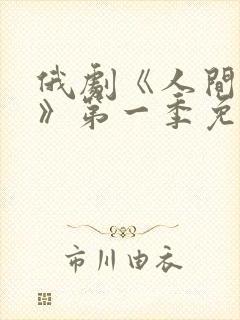 俄劇《人間
》第一季免
市川由衣